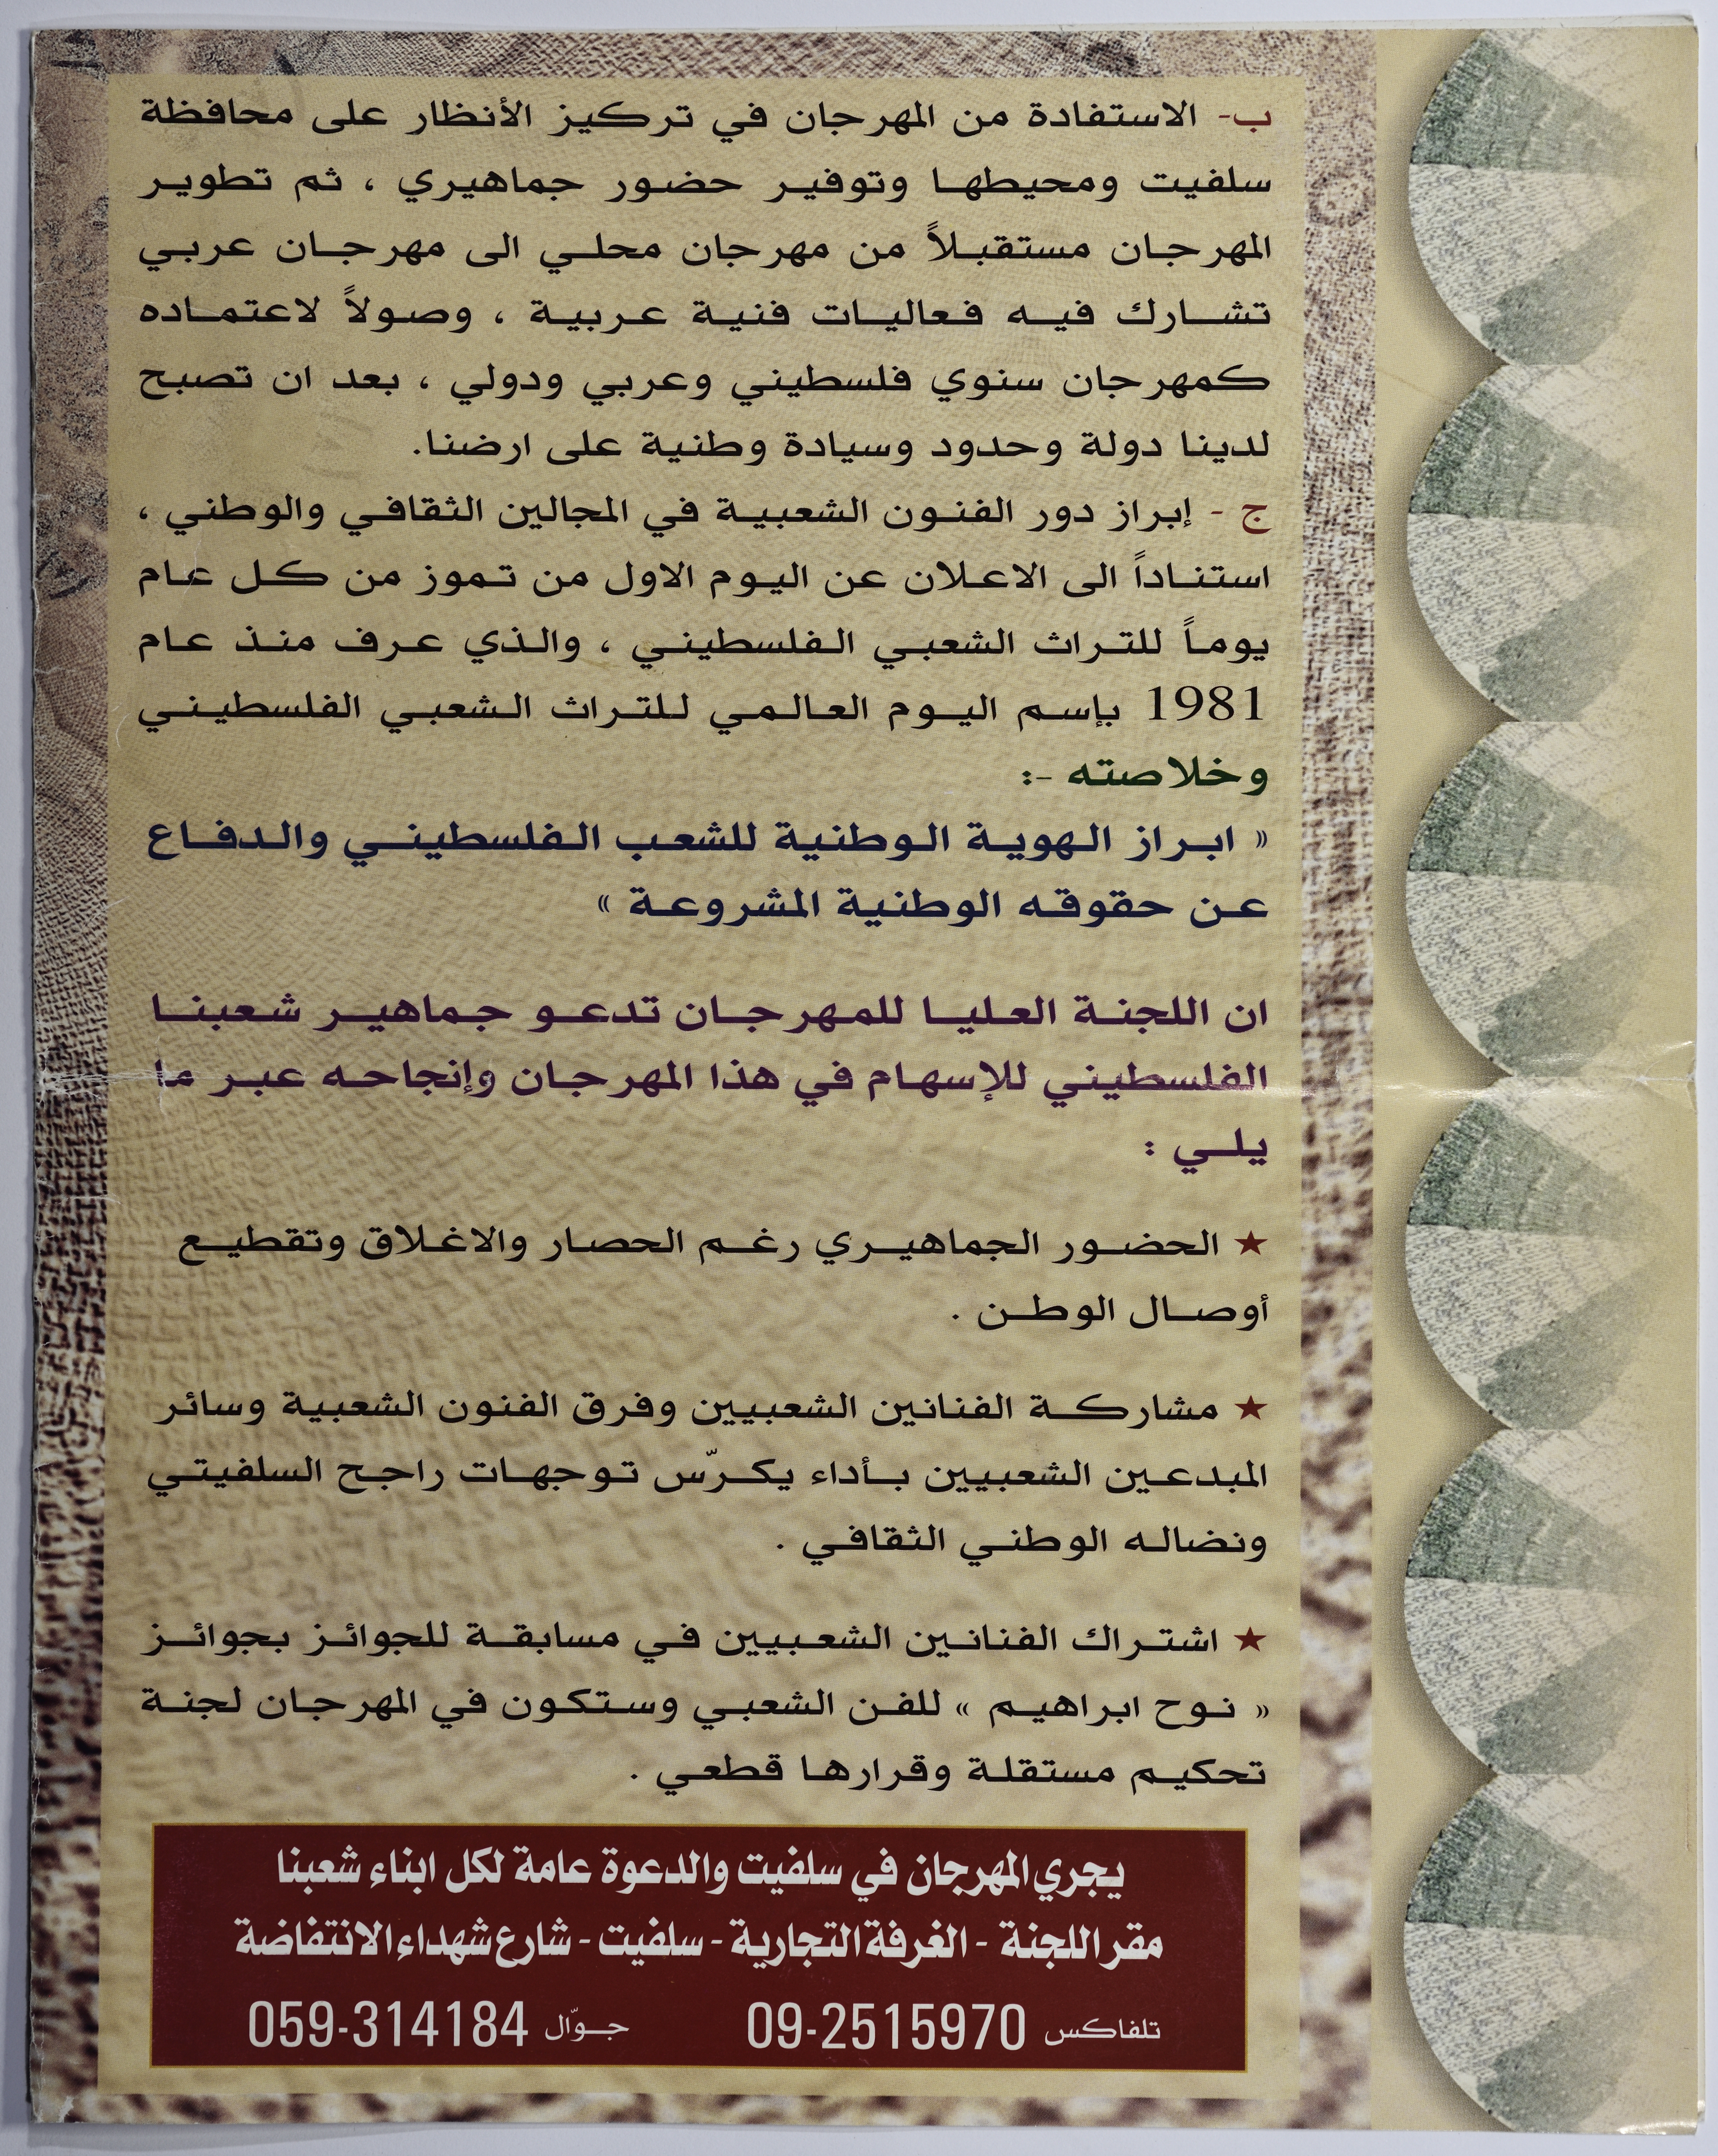 ب- الاستفادة من المهرجان في تركيز الأنظار على محافظة
سلفيت ومحيطها وتوفير حضور جماهيري ، ثم تطوير
المهرجان مستقبلاً من مهرجان محلي الى مهرجان عربي
تشارك فيه فعاليات فنية عربية ، وصولاً لاعتماده
كمهرجان سنوي فلسطيني وعربي ودولي ، بعد ان تصبح
لدينا دولة وحدود وسيادة وطنية على ارضنا.
ج - إبراز دور الفنون الشعبية في المجالين الثقافي والوطني ،
استناداً الى الاعلان عن اليوم الاول من تموز من كل عام
يوماً للتراث الشعبي الفلسطيني ، والذي عرف منذ عام
1981 بإسم اليوم العالمي للتراث الشعبي الفلسطيني
وخلاصته -:
« ابراز الهوية الوطنية للشعب الفلسطيني والدفاع
عن حقوقه الوطنية المشروعة »
ان اللجنة العليا للمهرجان تدعو جماهير شعبنا
الفلسطيني للإسهام في هذا المهرجان وإنجاحه عبر ما
يلي :
★ الحضور الجماهيري رغم الحصار والاغلاق وتقطيع
أوصال الوطن .
★ مشاركة الفنانين الشعبيين وفرق الفنون الشعبية وسائر
المبدعين الشعبيين بأداء يكرّس توجهات راجح السلفيتي
ونضاله الوطني الثقافي .
★ اشتراك الفنانين الشعبيين في مسابقة للجوائز بجوائز
« نوح ابراهيم » للفن الشعبي وستكون في المهرجان لجنة
تحكيم مستقلة وقرارها قطعي .
يجري المهرجان في سلفيت والدعوة عامة لكل ابناء شعبنا
مقر اللجنة - الغرفة التجارية - سلفيت - شارع شهداء الانتفاضة
تلفاكس 09-2515970 جوّال 059-314184